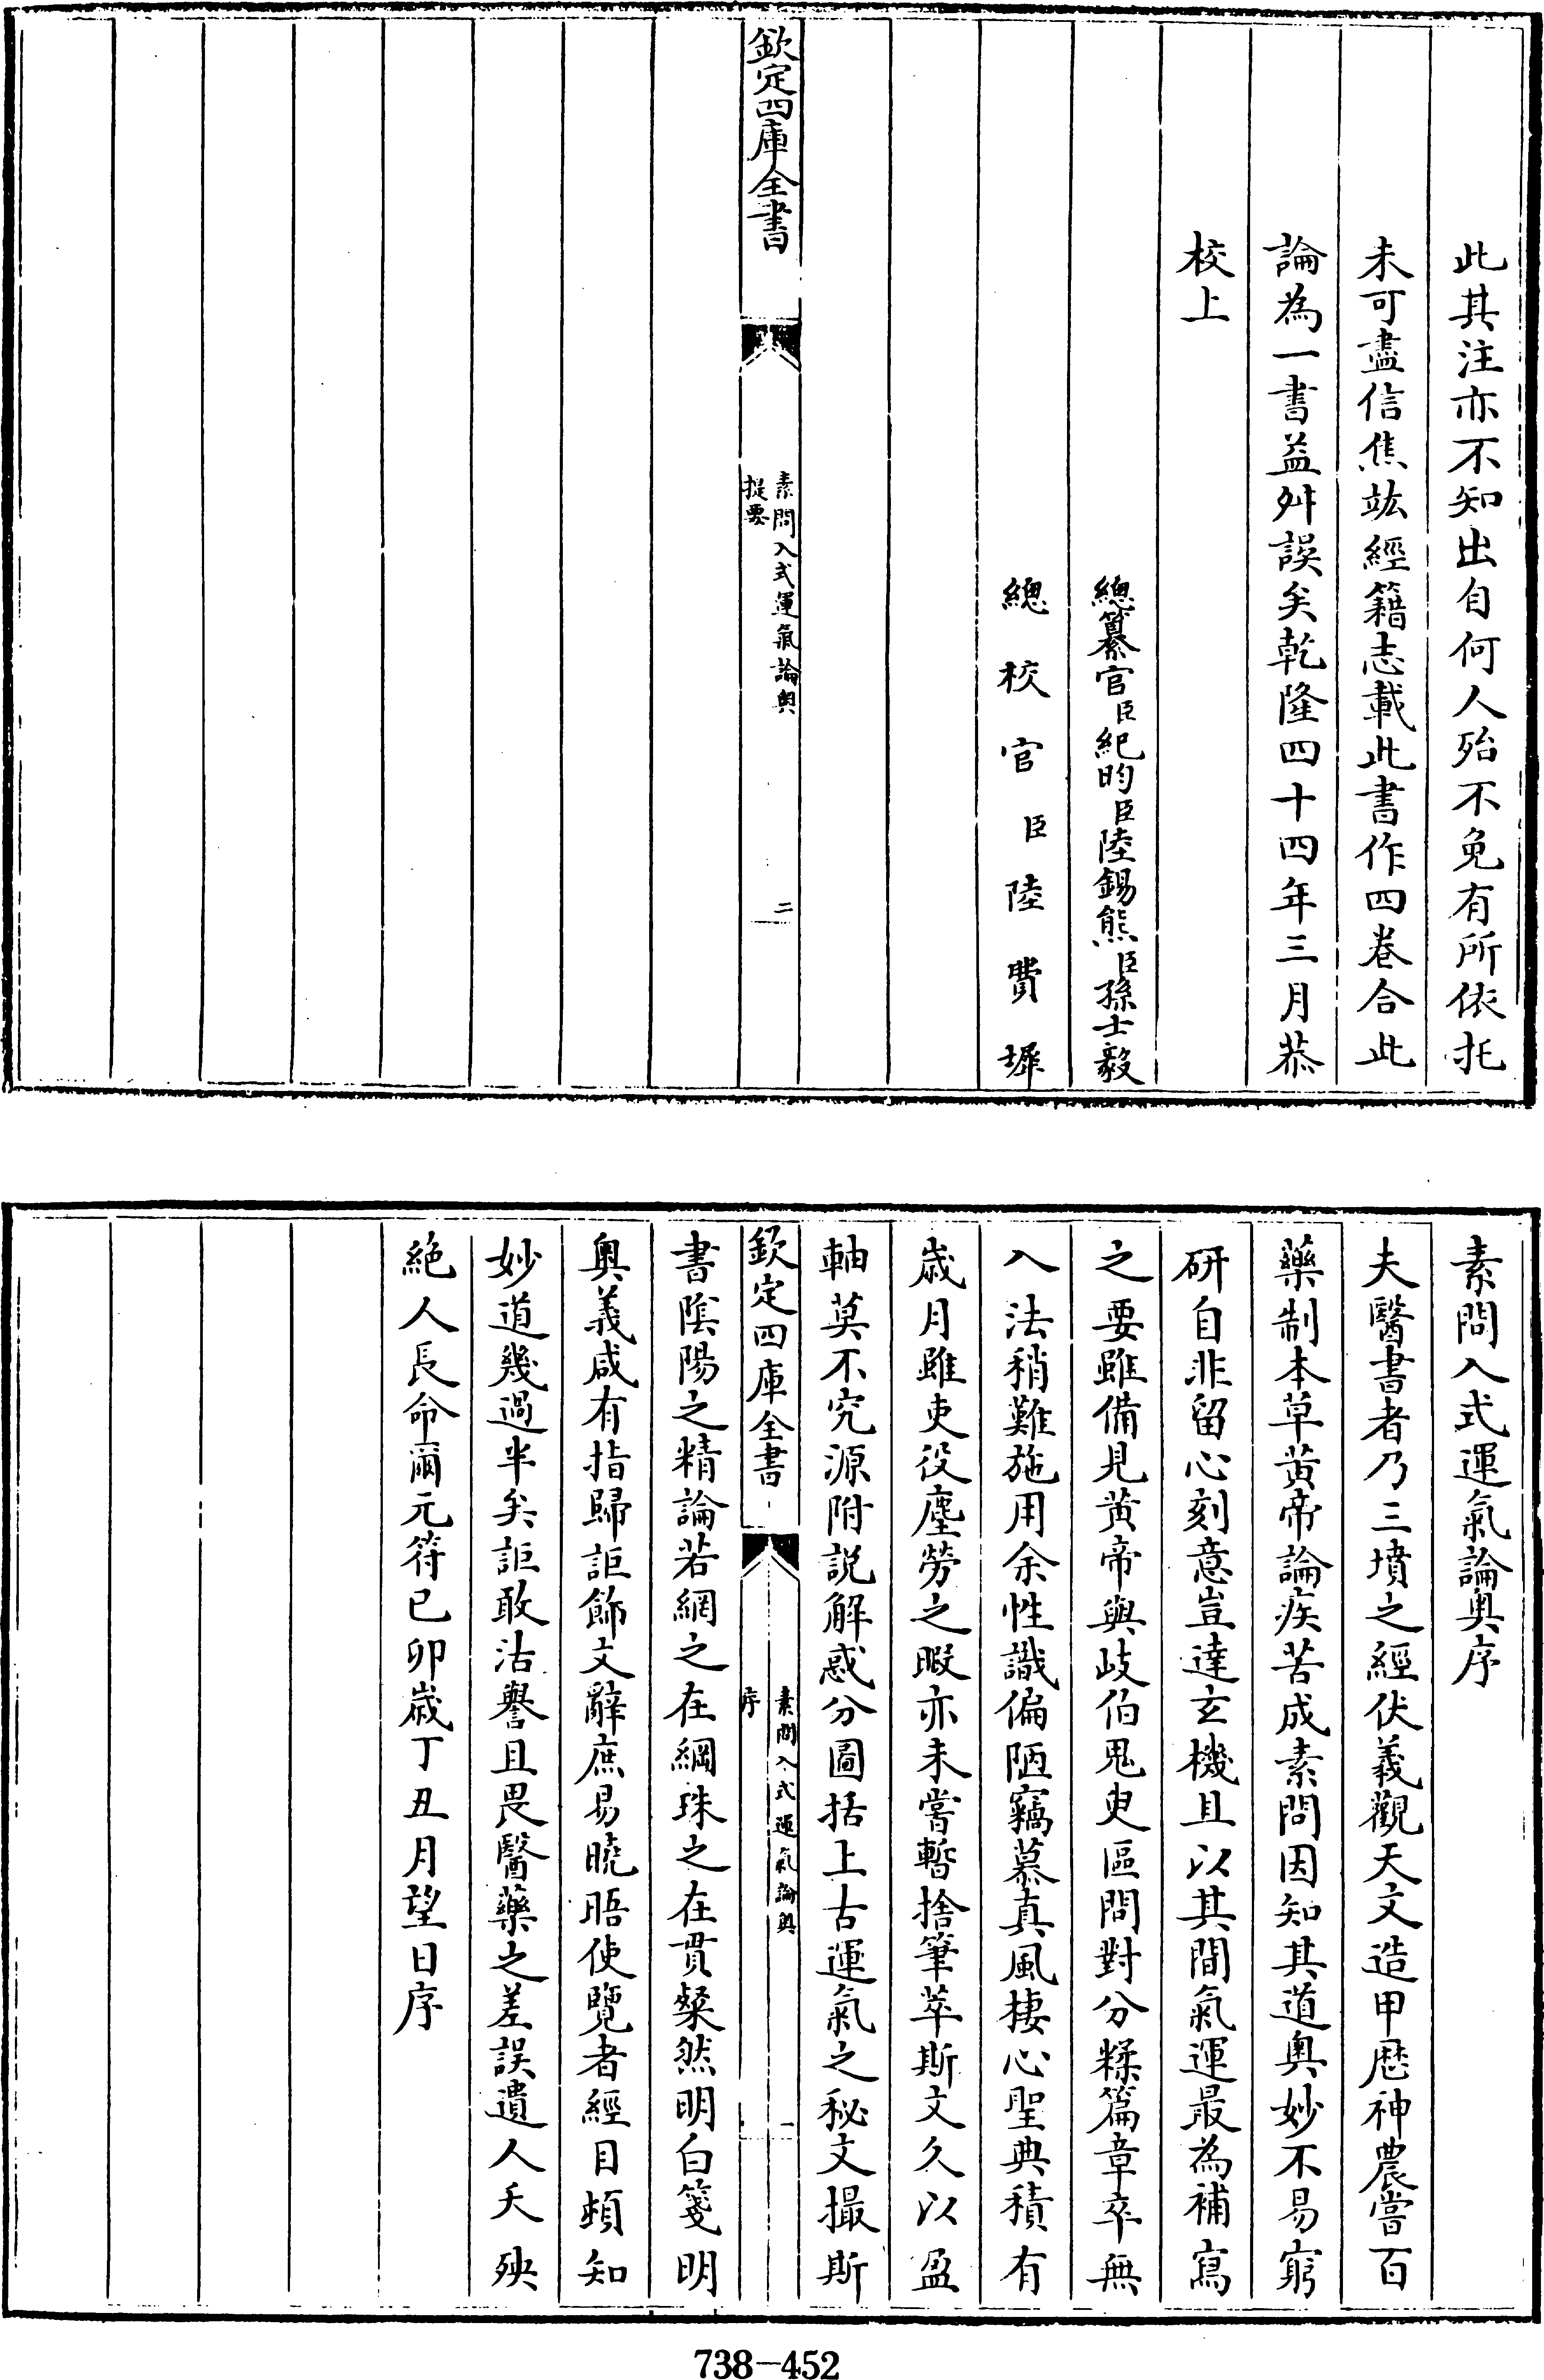 此其注亦不知出自何人殆不免有所依托
未可盡信焦竑經籍志載此書作四卷合此
論為一書益舛誤矣乾隆四十四年三月恭
校上
總纂官臣紀昀臣陸錫熊臣孫士毅
總校官臣陸費墀
欽定四庫全書
素問入式運氣論奥
提要
二
素問入式運氣論奥序
夫醫書者乃三墳之經伏義觀天文造甲歴神農嘗百
藥制本草黄帝論疾苦成素問因知其道奥妙不易窮
研自非留心刻意豈達玄機且以其間氣運最為補寫
之要雖備見黄帝與歧伯鬼臾區問對分糅篇章卒無
入法稍難施用余性識偏陋竊慕真風棲心聖典積有
歳月雖吏役塵勞之暇亦未嘗暫捨筆萃斯文久以盈
軸莫不究源附説解惑分圖括上古運氣之秘文撮斯
欽定四庫全書
素問入式運氣論奥
序
一
書陰陽之精論若網之在綱珠之在貫粲然明白箋明
奥義咸有指歸詎飾文辭庶易曉晤使覽者經目頓知
妙道幾過半矣詎敢沽譽且畏醫藥之差誤遺人夭殃
絶人長命爾元符己卯歳丁丑月望日序
738-452